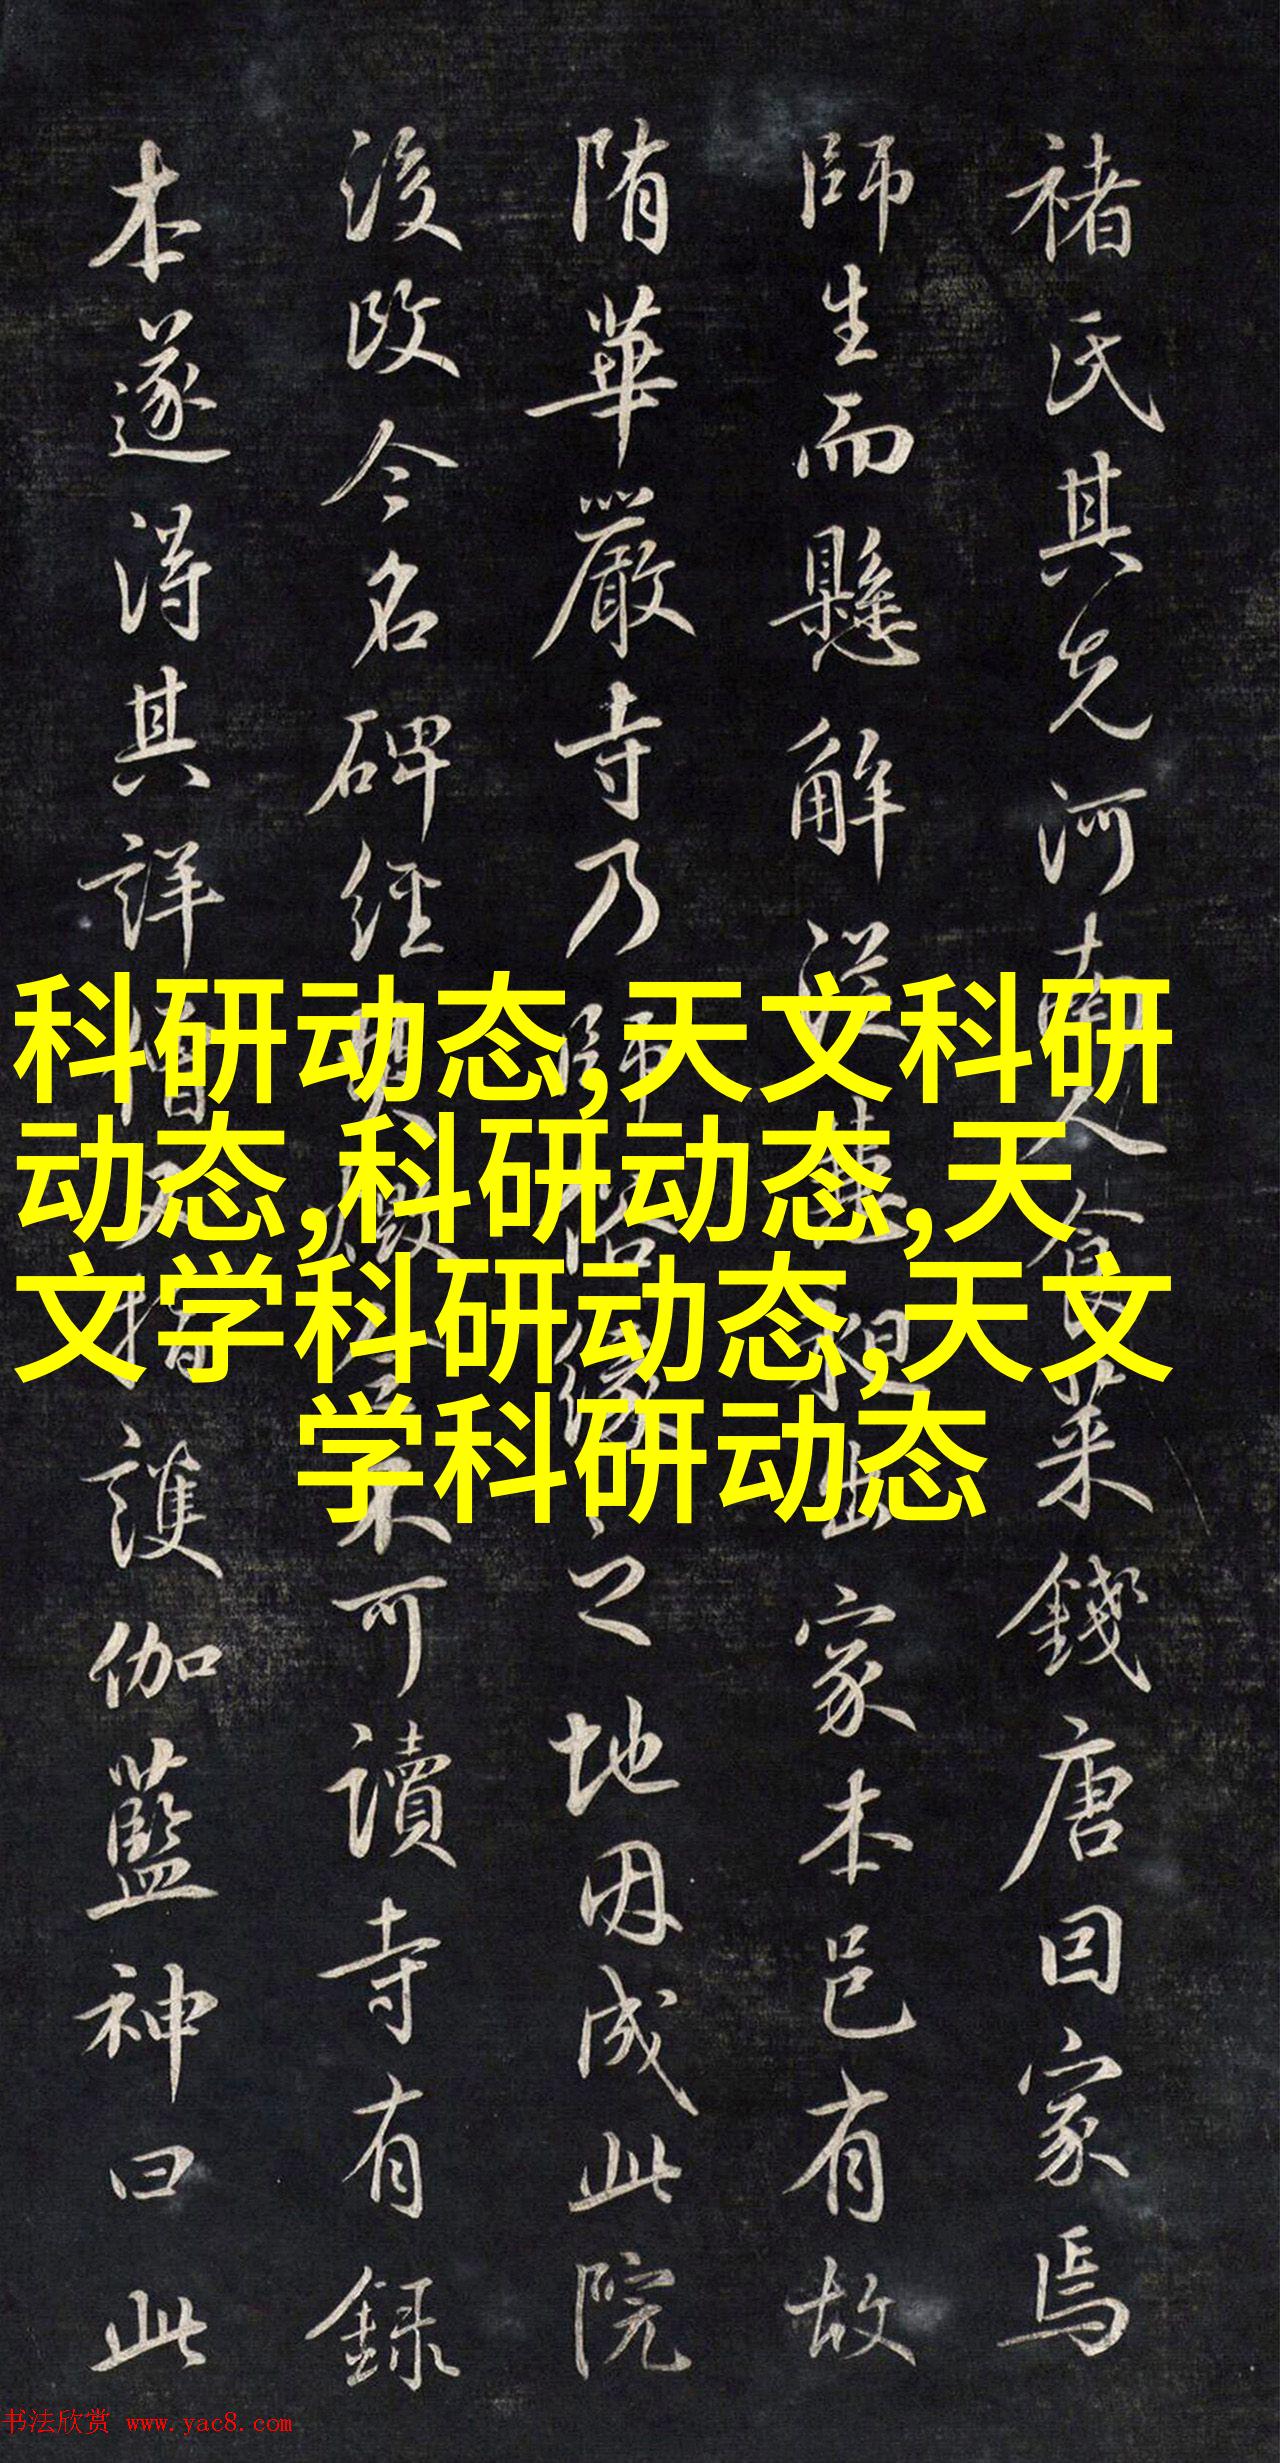 褚氏其先河南人食菜錢唐因家焉
師生而懸解從
家本邑有故
隋華嚴寺乃師
之地因成此院
後改今名碑經
不可讀寺有録
本遂得其詳惜
護伽藍神曰此
科研动态,天文科研
动态,科研动态,天
文学科研动态,天文
学科研动态
书法欣赏 www.yac8.com